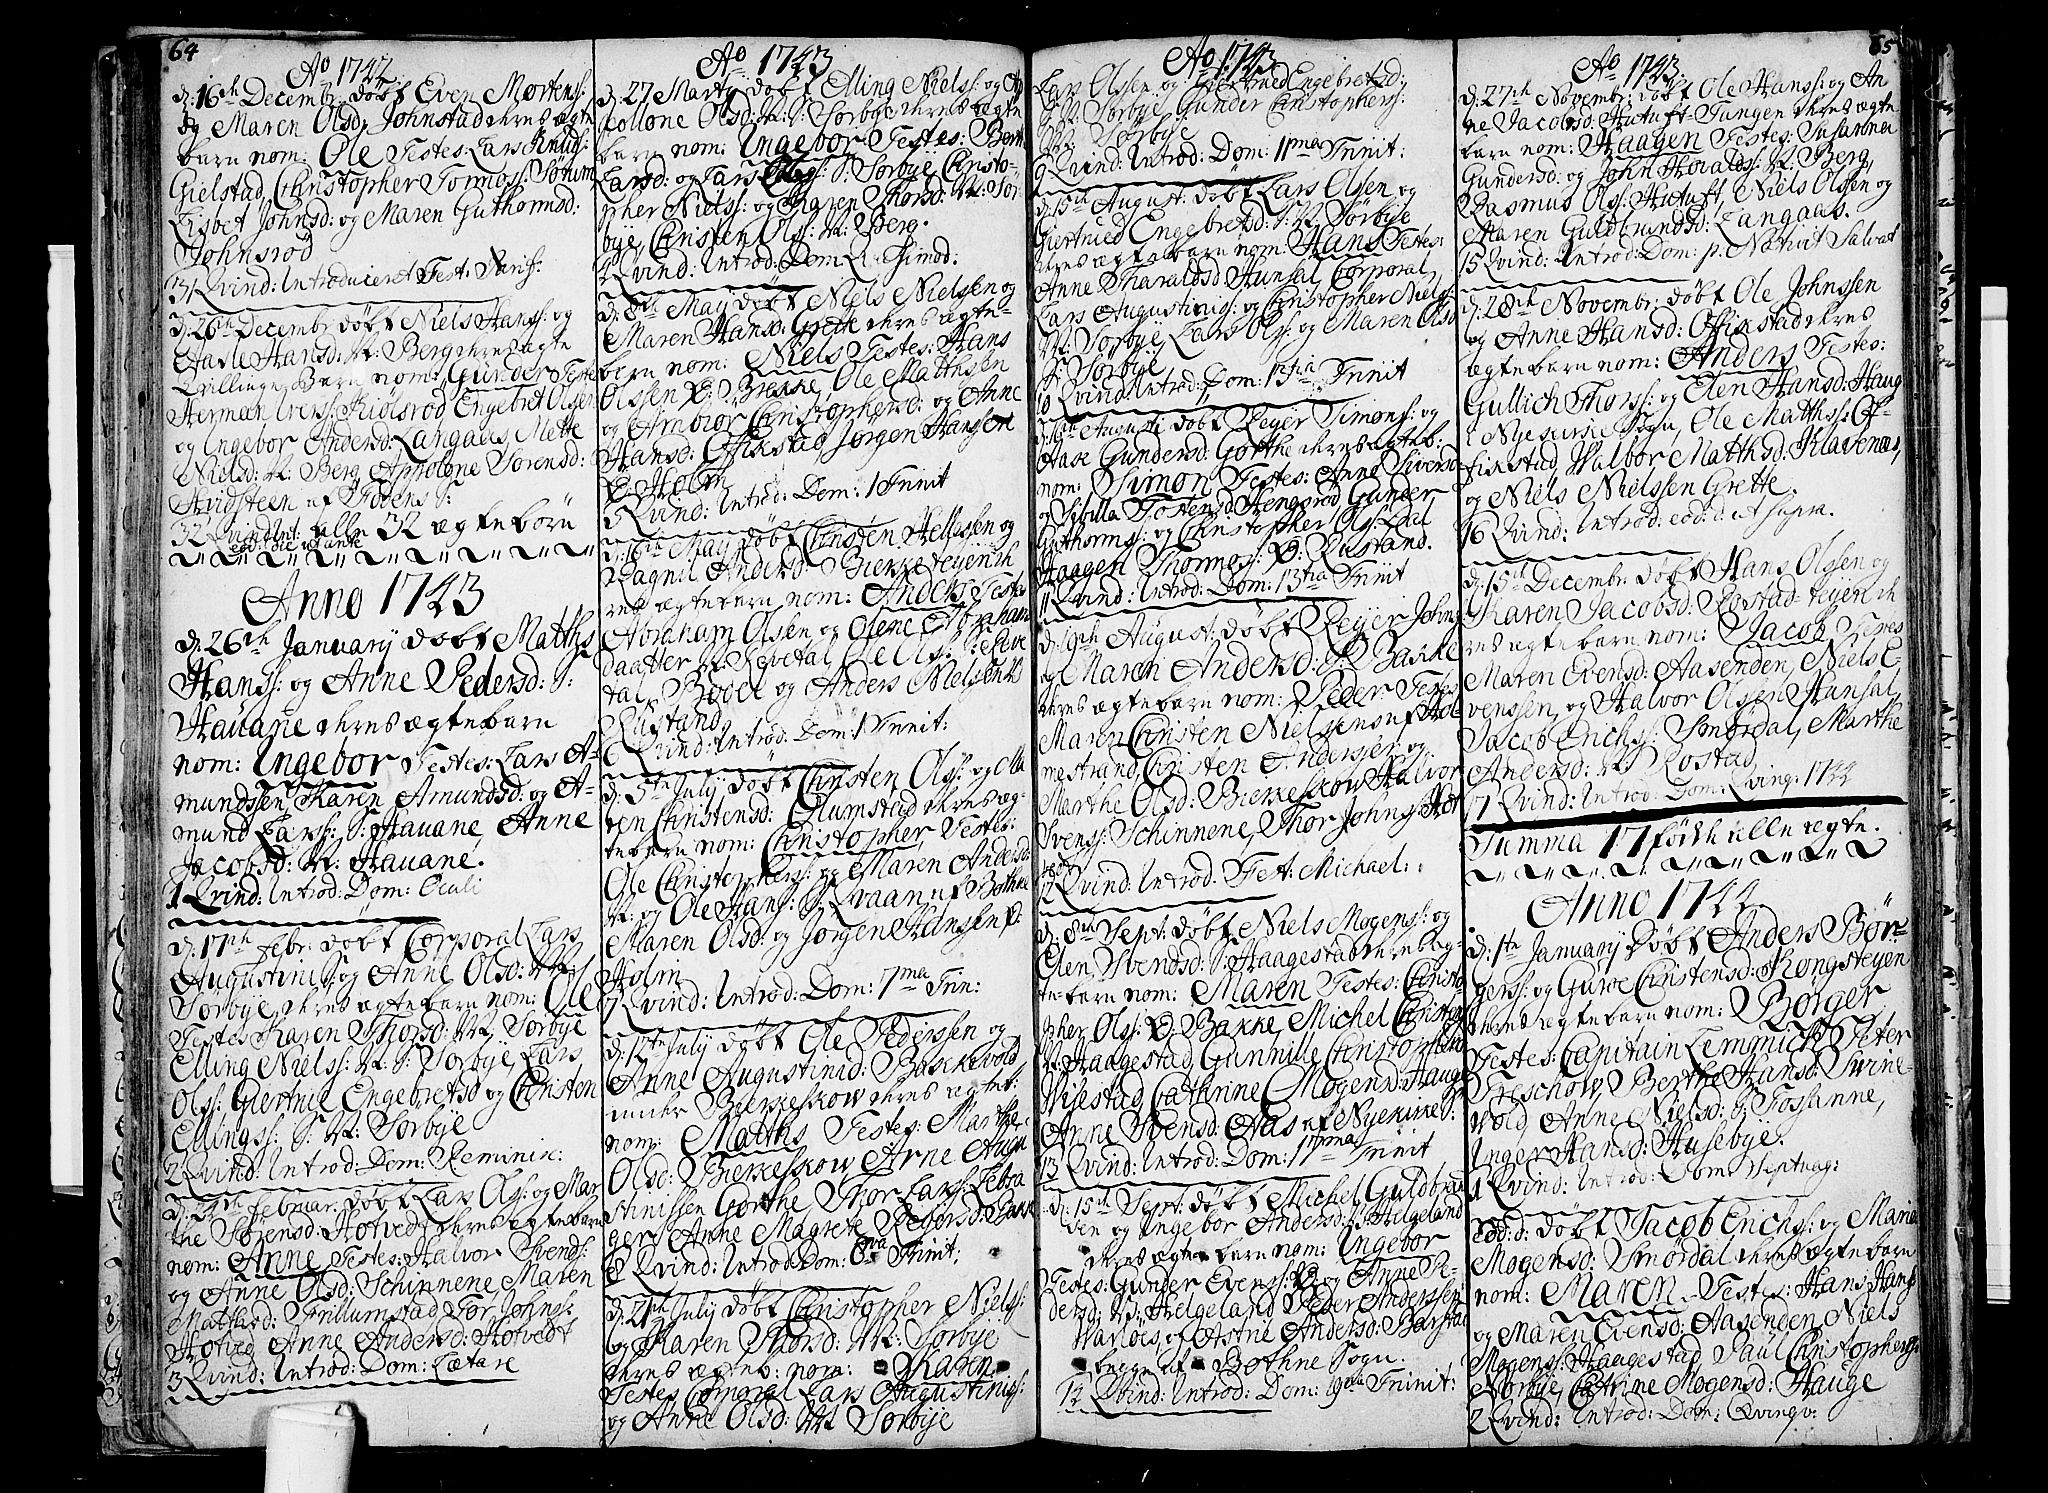 64
Ao 1742
d: 16th Decembr: döbt Even Mortens:
og Maren Olsd: Johnstad deres ægte
barn nom: Ole Testes: Lars Knuds:
Gielstad, Christopher Tormos: Sörum
Lisbet Johnsd: og Maren Guthormsd:
Johnsröd
31 Qvind: Introduceret Fest: Naris:
d: 26th Decembr: döbt Niels Hanss: og
Hansd: N: Berg deres ægte
Qvillinge Barn nom: Gunder Teste
Herman Ivers: Kiölsröd Engebret Olsen
og Ingebor Andersd: Langaas, Mette
Nielsd: N: Berg, Appolone Sörensd:
Avidsteen af Fodens S:
32 Qvind Int: alle 32 ægte börn
eod: die ut ante
Anno 1743
d: 26th January döbt Matths
Hans: og Anne Pedersd: S:
Hauane deres ægte barn
nom: Ingebor Testes: Lars A-
mundssen, Karen Amundsd: og A-
mund Lars: S: Hauane, Anne
Jacobsd: N: Hauane.
1 Qvind: Introd: Dom: Oculi
d: 17th Febr: döbt Corporal Lars
Augustini S: og Anne Olsd: N:
Sörbye deres ægte barn nom: Ole
Testes Karen Thorsd: N: Sörbye
Elling Niels: N: S: Sörbye, Lars
Ols: Giertrue Engebretsd og Christen
Ellings: S: N: Sörbye
2 Qvind: Introd: Dom: Reminisc:
d: 24th Februar: döbt Lars Ols: og Mar
the Sörensd: Hotvedt deres ægte barn
nom: Anne Testes: Halvor Svends:
og Anne Olsd: Schinnene, Maren
Mathisd: Frillumstad, Tor Johns:
Hotved Anne Andersd: Hotvedt
3 Qvind: Introd: Dom: Lætare
Ao 1743
d: 27 Marty döbt Elling Niels: og Ap
pollone Olsd: N: S: Sörbye deres ægte
barn nom: Ingebor Testes: Berte
Larsd: og Lars S: Sörbye Christo-
pher Niels: og Karen Thorsd: N: Sör
bye, Christen Ols: N: Berg.
4 Qvind: Introd: Dom: Qvasimod:
d: 8th May döbt Niels Nielsen og
Maren Hansd: Grette deres ægte-
barn nom: Niels Testes: Hans
Olssen Ø: Brekke, Ole Matthsen
og Arnbior Christophersd: og Anne
Hansd: Offikstad Jørgen Hansen
Ø: Holm
5 Qvind: Introd: Dom: 1 Trinit
d: 16th May döbt Christen Hellessen og
Ragnil Andersd: Bierketeyen de
res ægte barn nom: Anders Testes
Abraham Olsen og Olene Abraham
daatter N: Revetal, Ole Ols: S: Reve
tal, Bodel og Anders Nielsen N:
Rustand
6 Qvind: Introd: Dom: 1 Trinit:
d: 5te July döbt Christen Ols: og Ma
ren Christensd: Glumstad deres æg-
te barn nom: Christopher Testes:
Ole Christophers: og Maren Andersd:
N: og Ole Hans: S: Qvaan af Bothne
Maren Olsd: og Jørgen Hansen Ø:
Holm
7 Qvind: Introd: Dom: 7ma Trin:
d: 12te July döbt Ole Pederssen og
Anne Augustinid: Bakkevold
under Bierkeskow deres ægteb:
nom: Matths Testes: Marthe
Olsd: Bierkeskow Arne Augu
stinissen Gorthe, Thor Lars: Febra
gers Anne Magrete Reiersd: Bakke
8 Qvind: Introd: Dom: 8va Trinit:
d: 21th July döbt Christopher Niels:
og Karen Thorsd: N: Sörbye
deres ægteb: nom: Karen
Testes Corporal Lars Augustinis:
og Anne Olsd: N: Sörbye
Ao 1743
Lars Olssen og Giertrued Engebretsd:
S: N: Sörbye Gunder Christophers:
N: Sörbye
9 Qvind: Introd: Dom: 11ma Trinit:
d: 15th August: döbt Lars Olsen og
Giertrued Engebretsd: S: N: Sörbye
deres ægte barn nom: Hans Testes:
Anne Tharaldsd Hunsal, Corporal
Lars Augustinis: og Christopher Niels:
N: Sörbye Lars Ols: og Maren Olsd
S: Sörbye
10 Qvind: Introd: Dom: 13tia Trinit
d: 16th Augusti döbt Reyer Simons: og
Aase Gundersd: Gorthe deres ægteb:
nom: Simon Testes: Anne Siversd
og Sibilla Tostensd: Hengsröd Gunder
Guthorms: og Christopher Ols: Ødal
Haagen Thormos: Ø: Rustand.
11 Qvind: Introd: Dom: 13tia Trinit
d: 19th August: döbt Reyer Johns
og Maren Andersd: S: Bakke
deres ægte barn nom: Peder Testes
Maren Christen Nielsens af Hol
mestrand, Christen Anderssen og
Marthe Olsd: Bierkeskow Halvor
Svens: Schinnene, Thor Johns: Hot
ved
12 Qvind: Introd: Fest: Michael:
d: 8th Sept: döbt Niels Mogens: og
Elen Svendsd: S: Haagestad deres æg-
te-barn nom: Maren Testes: Christo
pher Ols: Ø: Bakke, Michel Christens
N: Haagestad, Gunnille Christophersd
Vivestad Cathrine Mogensd: Hauge
Anne Svensd: Aas af Nyekirke S:
13 Qvind: Introd: Dom: 17ma Trinit
d: 15th Sept: döbt Michel Guldbran
den og Ingebor Andersd: N: Helgeland
deres ægte barn nom: Ingebor
Testes: Gunder Evens: og Anne Pe-
dersd: N: Helgeland Peder Anderssen
Warlöes, og Astrie Andersd: Barstad
berge af Bothne Sogn:
14 Qvind: Introd: Dom: 19na Trinit:
65
Ao 1743
d: 27th Novembr: döbt Ole Hanss: og An
ne Jacobsd: Hutuft-Tangen deres ægte
barn nom: Haagen Testes: Susanna
Gundersd: og John Hovalds: N: Berg,
Rasmus Ols: Hutuft, Niels Olsen og
Maren Guldbrandsd: Langaas.
15 Qvind: Introd: Dom: p: Nativit Salvat
d: 28th Novembr: döbt Ole Johnssen
og Anne Hansd: Offikstad deres
ægte barn nom: Anders Testes:
Gullich Thors: og Elen Hansd: Haug
i Nyekirke Sogn, Ole Matths: Of-
fikstad, Walbor Matthsd: Klavenæs,
og Niels Nielssen Grette.
16 Qvind: Introd: eod: d: ut supra.
d: 15th Decembr: döbt Hans Olsen og
Karen Jacobsd: Rostad-teyen de
res ægte barn nom: Jacob Testes
Maren Evensd: Aasenden, Niels E-
venssen, og Halvor Olsen Hunsal,
Jacob Erichs: Smørdal, Marthe
Andersd: N: Rostad
17 Qvind: Introd: Dom: Qving: 1744
Summa 17 födde alle ægte.
Anno 1744
d: 1te January döbt Anders Bør-
gers: og Gurve Christensd: Kongsteyen
deres ægte barn nom: Børger
Testes: Capitain Lemmich Peter
Treschow, Berthe Hansd: Svine-
vold, Anne Nielsd: Ø: Fossanne,
Inger Hansd: Husebye.
1 Qvind: Introd: Dom: Septuag:
eod: d: döbt Jacob Erichs: og Maria
Mogensd: Smørdal deres ægte barn
nom: Maren Testes: Hans Hans:
og Maren Evensd: Aasenden, Niels
Mogens: Haagestad, Paul Christophers:
Norbye, Catrine Mogensd: Hauge
2 Qvind: Introd: Dom: Qvinqv: